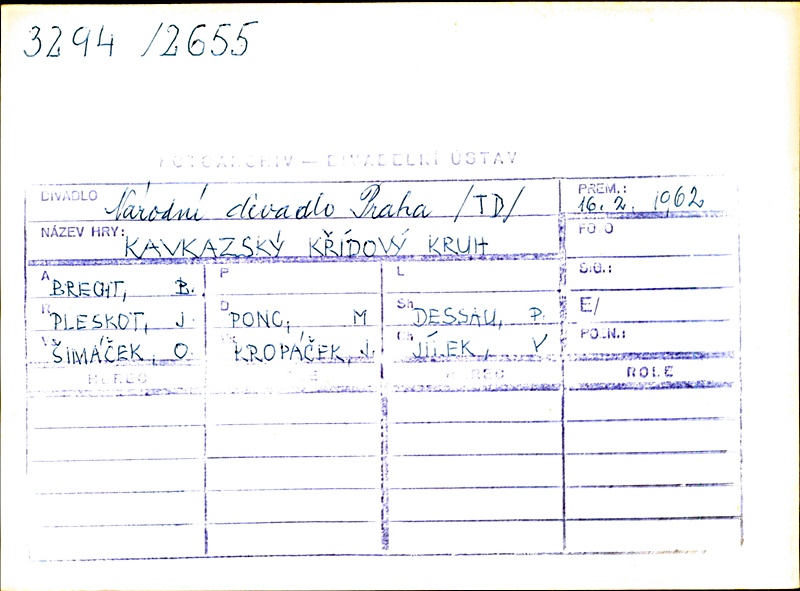 3294 /2655
FOTOARCHIV – DIVADELNÍ ÚSTAV
DIVADLO Národní divadlo Praha /TD/ PREM.: 16. 2. 1962
NÁZEV HRY: KAVKAZSKÝ KŘÍDOVÝ KRUH FOTO
SIG.:
A BRECHT, B. P L E/
R PLESKOT, J D PONC, M Sh DESSAU, P. POZN.:
ŠIMÁČEK, O. KROPÁČEK, J. Ch JÍLEK, V
HEREC HEREC ROLE